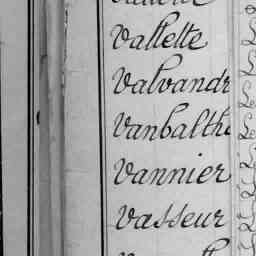 Vallette
Valvandr
Vanbalthe
Vannier
Vasseur